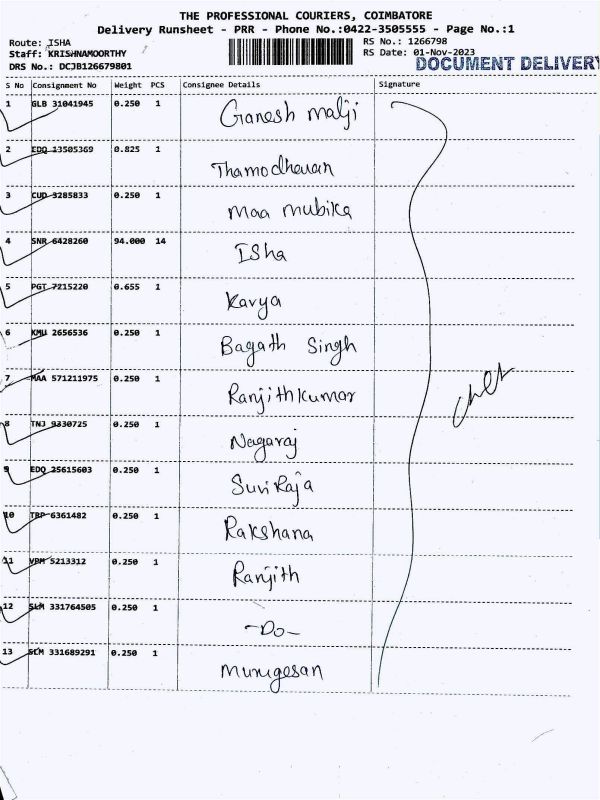 THE PROFESSIONAL COURIERS, COIMBATORE
Delivery Runsheet - PRR - Phone No.:0422-3505555 - Page No.:1
Route: ISHA
RS No.: 1266798
Staff: KRISHNAMOORTHY
RS Date: 01-Nov-2023
DRS No.: DCJB126679801
DOCUMENT DELIVERY
S No Consignment No Weight PCS Consignee Details Signature
1 GLB 31041945 0.250 1 Ganesh malji
2 EDQ 13505369 0.825 1 Thamodhevan
3 CUD 3285833 0.250 1 Maa mubika
4 SNR 6428260 94.000 14 ISha
5 PGT 7215220 0.655 1 Karya
6 KMU 2656536 0.250 1 Bagath Singh
7 MAA 571211975 0.250 1 Ranjithkumar
8 TNJ 9330725 0.250 1 Nagaraj
9 EDQ 25615603 0.250 1 Suvi Raja
10 TRP 6361482 0.250 1 Rakshana
11 VPM 5213312 0.250 1 Ranjith
12 SLM 331764505 0.250 1 -Do-
13 SLM 331689291 0.250 1 Murugesan